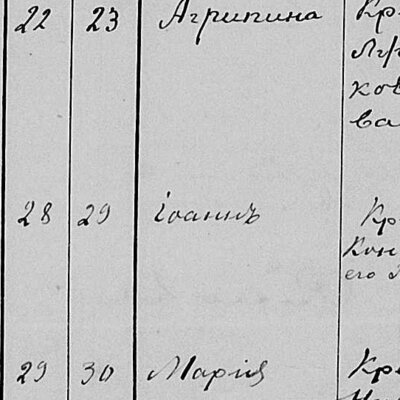 22 23 Агрипина Кр
ков
ва
28 29 Іоаннъ Кр
Кон
его
29 30 Марія Кре